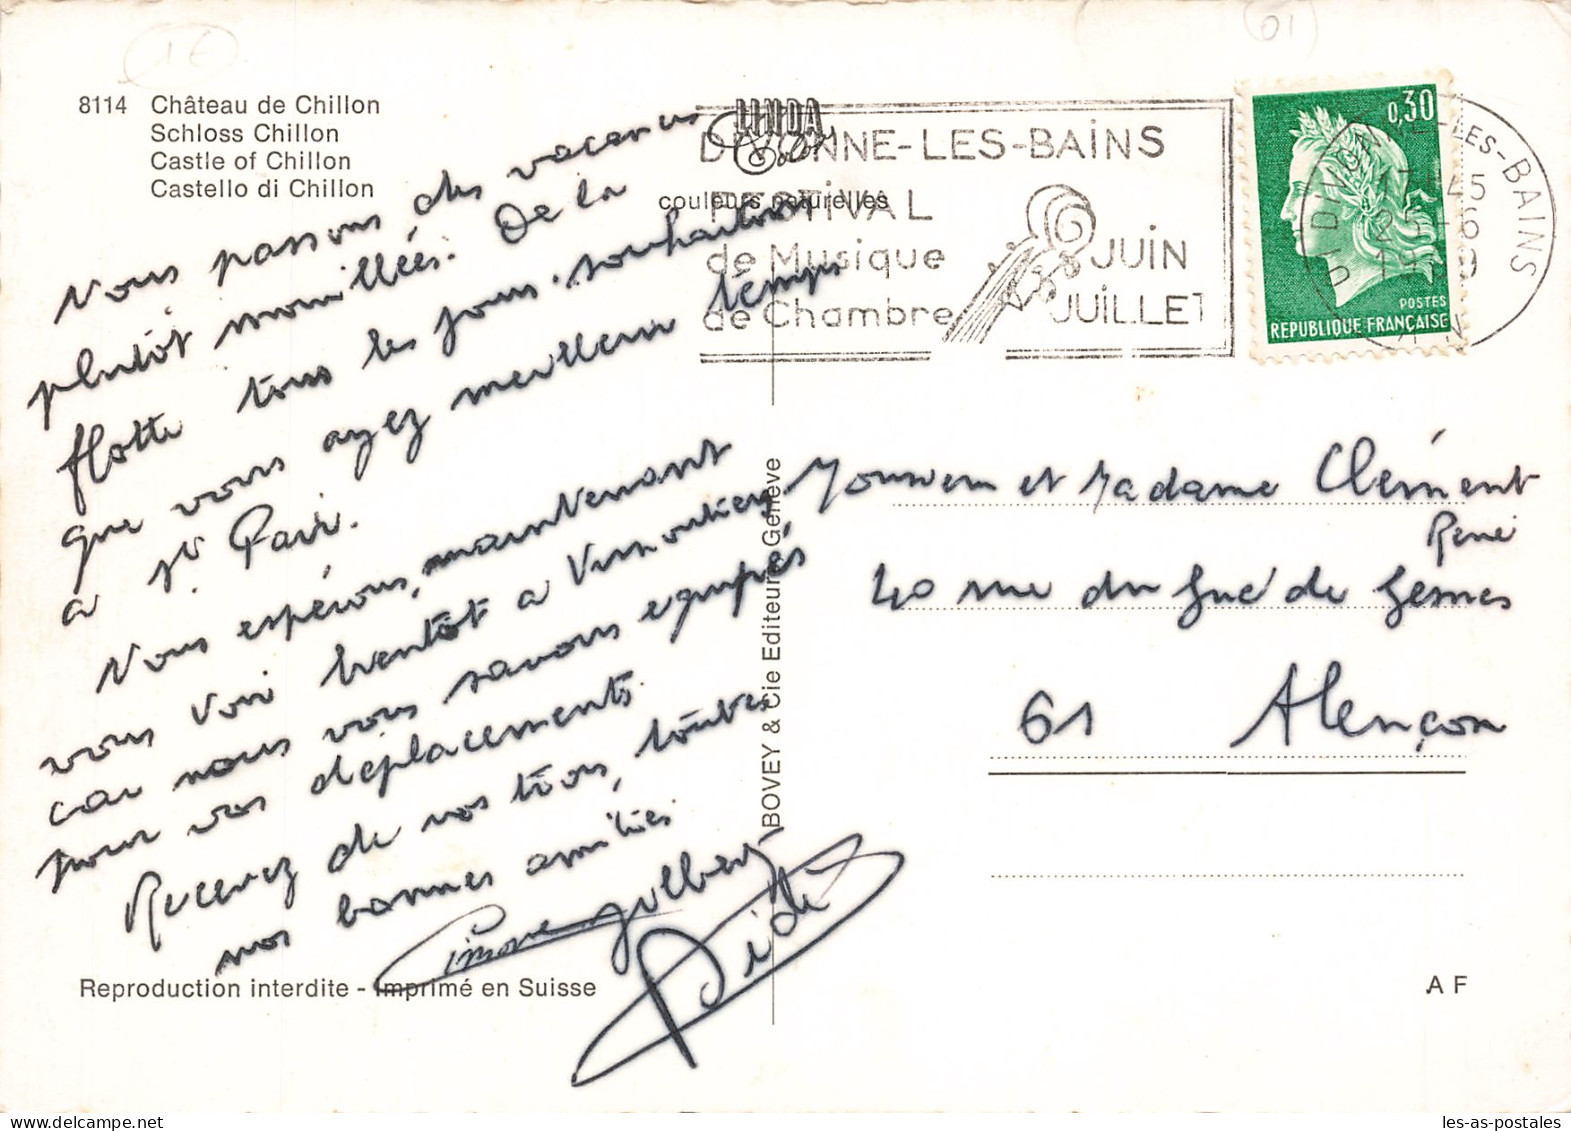 8114 Château de Chillon
Schloss Chillon
Castle of Chillon
Castello di Chillon
LINDA
Color
couleurs naturelles
DIVONNE-LES-BAINS
FESTIVAL
de Musique
de Chambre
JUIN
JUILLET
0,30
POSTES
REPUBLIQUE FRANÇAISE
01 DIVONNE-LES-BAINS
17 45
25-6
AIN
Nous passons des vacances
plutôt mouillées. De la
flotte tous les jours. souhaitons
que vous ayez meilleur temps
a St Pair.
Nous espérons, maintenant
vous voir bientôt a Vimoutiers
car nous vous savons equipés
pour vos déplacements
Recevez de nos trois, toutes
nos bonnes amitiés
Simone
Didi
Monsieur et Madame Clément
René
40 rue du Gué de Gesnes
61 Alençon
BOVEY & Cie Editeur Genève
Reproduction interdite - Imprimé en Suisse
A F
les-as-postales